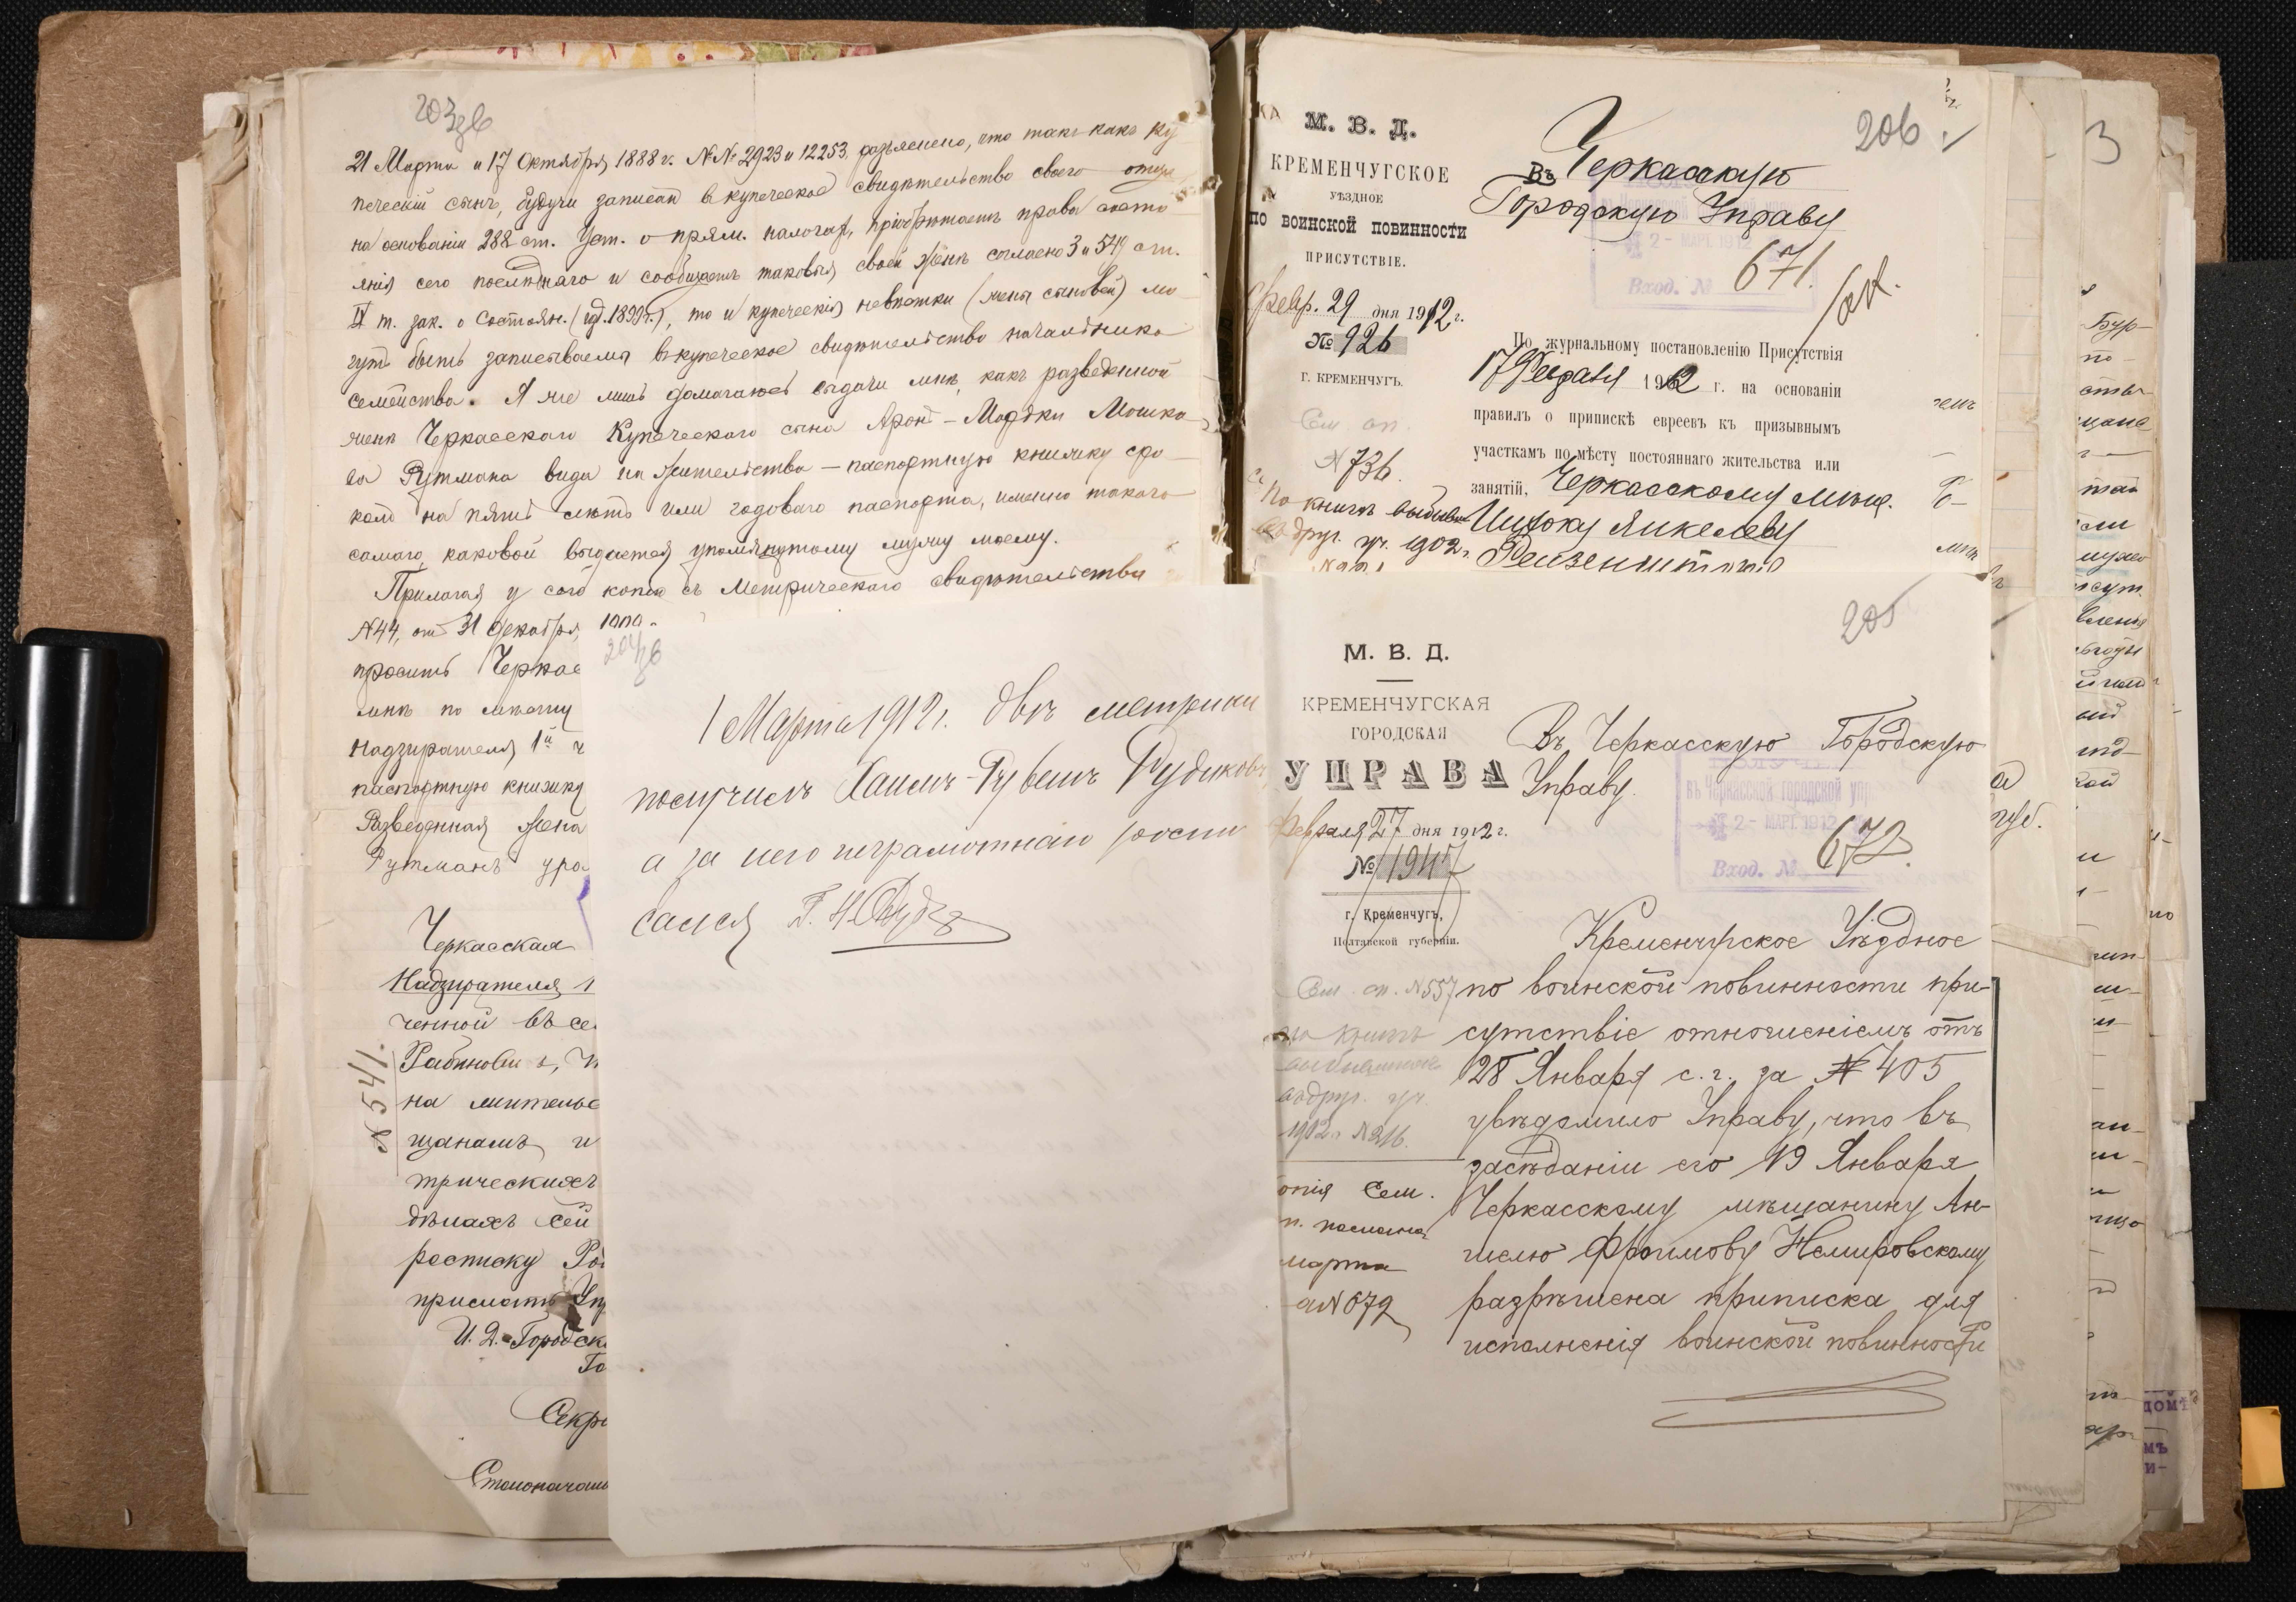 203 об
21 Марта и 17 Октября 1888 г. №№ 2923 и 12253, разъяснено, что такъ какъ ку
печескій сынъ, будучи записан в купеческое свидѣтельство своего отца
на основаніи 288 ст. Уст. о прям. налогах, пріобрѣтаетъ права состо
янія сего послѣдняго и сообщаетъ таковыя своей женѣ согласно 3 и 549 ст.
IX т. зак. о Состоян. (изд. 1899 г.), то и купеческія невѣстки (жены сыновей) мо
гутъ быть записываемы въ купеческое свидѣтельство начальника
семейства. Я же лишь домагаюсь выдачи мнѣ, какъ разведенной
женѣ Черкасскаго Купеческаго сына Арон-Мордки Мошко
ва Рутмана вида на жительство — паспортную книжку сро
комъ на пять лѣтъ или годоваго паспорта, именно такого
самаго, каковой выдается упомянутому мужу моему.
Прилагая у сего копію съ Метрическаго свидѣтельства
№ 44, от 31 Декабря
просить Черкас
мнѣ по мѣсту
Надзирателя 1й ч
паспортную книжку
Разведенная жена
Рутманъ уро
Черкасская
Надзирателя 1
ченной въ се
Рабинови
на жительс
щанамъ и
трическихъ
дѣлахъ сей
росписку Ра
прислать Упр
И. Д. Городск
Го
Секре
Столоначаль
№ 541.
204 об
1 Марта 1912 г. двѣ метрики
получилъ Хаимъ-Рувенъ Рудиковъ
а за него неграмотнаго роспи
сался
206
М. В. Д.
КРЕМЕНЧУГСКОЕ
УѢЗДНОЕ
ПО ВОИНСКОЙ ПОВИННОСТИ
ПРИСУТСТВІЕ.
Февр. 29 дня 1912 г.
№ 926
г. КРЕМЕНЧУГЪ.
Сем. сп.
№ 736.
По книгѣ выбывш
въ друг. уч. 1902 г.
Въ Черкасскую
Городскую Управу
2 - МАРТ. 1912
Вход. № 671.
По журнальному постановленію Присутствія
17 Февраля 1912 г. на основаніи
правилъ о припискѣ евреевъ къ призывнымъ
участкамъ по мѣсту постояннаго жительства или
занятій, Черкасскому мѣщ.
Ицхоку Янкелеву
205
М. В. Д.
КРЕМЕНЧУГСКАЯ
ГОРОДСКАЯ
УПРАВА
Февраля 27 дня 1912 г.
№ 1947
г. Кременчугъ,
Полтавской губерніи.
Сем. сп. № 557
по книгѣ
выбывших
въ друг. уч.
1902 г. № 216.
опія Сем.
п. послана
марта
а № 679
Въ Черкасскую Городскую
Управу.
въ Черкасской городской упр
2 - МАРТ. 1912
Вход. № 672.
Кременчугское Уѣздное
по воинской повинности при-
сутствіе отношеніемъ отъ
28 Января с. г. за № 405
увѣдомило Управу, что въ
засѣданіи его 19 Января
Черкасскому мѣщанину Ан-
шелю Фроимову Немировскому
разрѣшена приписка для
исполненія воинской повинности
3